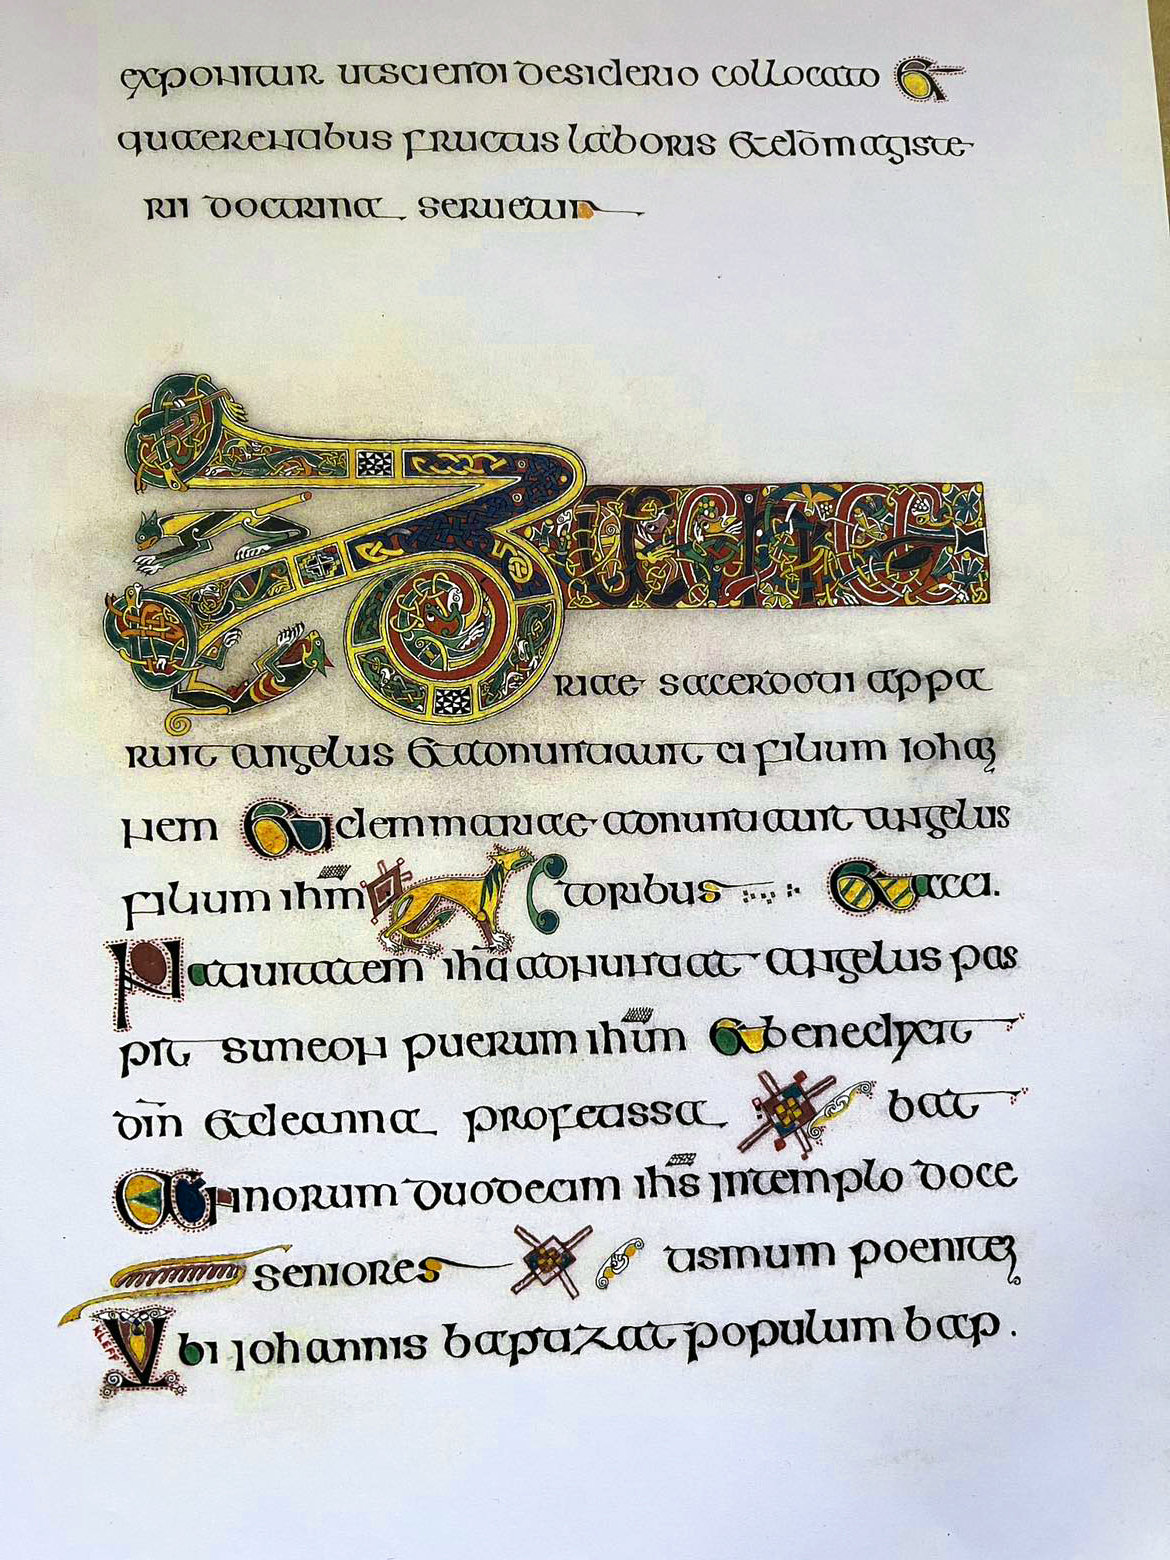 exponitur utsciendi desiderio collocato &
quaerentibus fructus laboris &elōmagiste
rii doctrina seruetur
Zacha
riae sacerdoti appa
ruit angelus &adonuntiauit ei filium Iohan
nem &idem mariae adonuntiauit angelus
filium ihm̄ toribus &acci.
Natiuitatem ihū adonuntiat angelus pas
pit simeon puerum ihūm &benedixit
dīn &deanna profetissa bat
Annorum duodecim ihs̄ intemplo doce
seniores tismum poeniten
KLEFF
Vbi Iohannis baptizat populum bap.